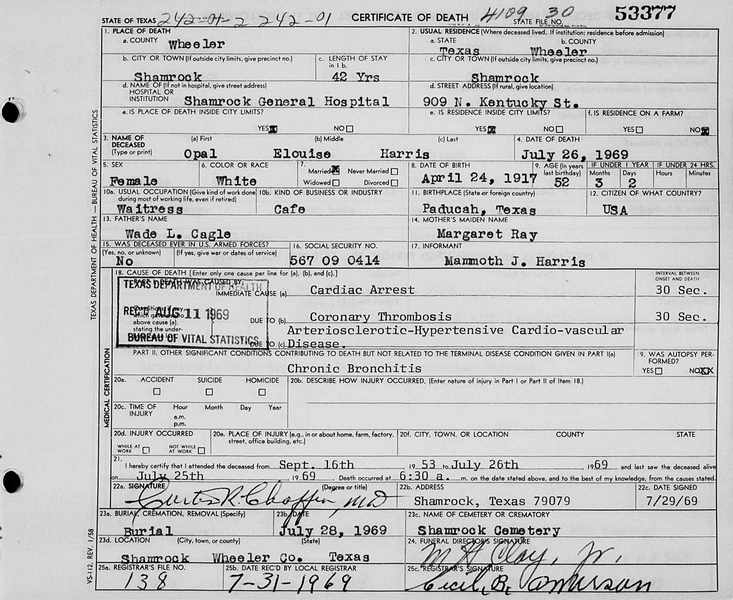 STATE OF TEXAS 242-01-2 242-01 CERTIFICATE OF DEATH 4109 30 STATE FILE NO. 53377
1. PLACE OF DEATH
a. COUNTY Wheeler
2. USUAL RESIDENCE (Where deceased lived. If institution: residence before admission)
a. STATE Texas b. COUNTY Wheeler
b. CITY OR TOWN (If outside city limits, give precinct no.) Shamrock
c. LENGTH OF STAY in 1 b. 42 Yrs
c. CITY OR TOWN (If outside city limits, give precinct no.) Shamrock
d. NAME OF (If not in hospital, give street address) HOSPITAL OR INSTITUTION Shamrock General Hospital
d. STREET ADDRESS (If rural, give location) 909 N. Kentucky St.
e. IS PLACE OF DEATH INSIDE CITY LIMITS? YES X NO
e. IS RESIDENCE INSIDE CITY LIMITS? YES X NO
f. IS RESIDENCE ON A FARM? YES NO X
3. NAME OF DECEASED (Type or print) (a) First Opal (b) Middle Elouise (c) Last Harris
4. DATE OF DEATH July 26, 1969
5. SEX Female
6. COLOR OR RACE White
7. Married X Never Married Widowed Divorced
8. DATE OF BIRTH April 24, 1917
9. AGE (In years last birthday) 52
IF UNDER 1 YEAR Months 3 Days 2
IF UNDER 24 HRS. Hours Minutes
10a. USUAL OCCUPATION (Give kind of work done during most of working life, even if retired) Waitress
10b. KIND OF BUSINESS OR INDUSTRY Cafe
11. BIRTHPLACE (State or foreign country) Paducah, Texas
12. CITIZEN OF WHAT COUNTRY? USA
13. FATHER'S NAME Wade L. Cagle
14. MOTHER'S MAIDEN NAME Margaret Ray
15. WAS DECEASED EVER IN U.S. ARMED FORCES? (Yes, no, or unknown) (If yes, give war or dates of service) No
16. SOCIAL SECURITY NO. 567 09 0414
17. INFORMANT Mammoth J. Harris
18. CAUSE OF DEATH [Enter only one cause per line for (a), (b), and (c).]
INTERVAL BETWEEN ONSET AND DEATH
IMMEDIATE CAUSE (a) Cardiac Arrest 30 Sec.
TEXAS DEPARTMENT OF HEALTH
REC'D AUG 11 1969
BUREAU OF VITAL STATISTICS
above cause (a), stating the under-
DUE TO (b) Coronary Thrombosis 30 Sec.
DUE TO (c) Arteriosclerotic-Hypertensive Cardio-vascular Disease.
PART II. OTHER SIGNIFICANT CONDITIONS CONTRIBUTING TO DEATH BUT NOT RELATED TO THE TERMINAL DISEASE CONDITION GIVEN IN PART I(a)
Chronic Bronchitis
9. WAS AUTOPSY PERFORMED? YES NO XX
MEDICAL CERTIFICATION
20a. ACCIDENT SUICIDE HOMICIDE
20b. DESCRIBE HOW INJURY OCCURRED. (Enter nature of injury in Part I or Part II of item 18.)
20c. TIME OF INJURY Hour a.m. p.m. Month Day Year
20d. INJURY OCCURRED WHILE AT WORK NOT WHILE AT WORK
20e. PLACE OF INJURY (e.g., in or about home, farm, factory, street, office building, etc.)
20f. CITY, TOWN, OR LOCATION COUNTY STATE
21. I hereby certify that I attended the deceased from Sept. 16th 1953 to July 26th 1969 and last saw the deceased alive
on July 25th 1969 Death occurred at 6:30 a. m. on the date stated above, and to the best of my knowledge, from the causes stated.
22a. SIGNATURE (Degree or title) Curtis R. Chaffin, MD
22b. ADDRESS Shamrock, Texas 79079
22c. DATE SIGNED 7/29/69
23a. BURIAL, CREMATION, REMOVAL (Specify) Burial
23b. DATE July 28, 1969
23c. NAME OF CEMETERY OR CREMATORY Shamrock Cemetery
23d. LOCATION (City, town, or county) (State) Shamrock Wheeler Co. Texas
24. FUNERAL DIRECTOR'S SIGNATURE M H Clay, Jr.
25a. REGISTRAR'S FILE NO. 138
25b. DATE REC'D BY LOCAL REGISTRAR 7-31-1969
25c. REGISTRAR'S SIGNATURE Cecil R. Anderson
TEXAS DEPARTMENT OF HEALTH — BUREAU OF VITAL STATISTICS
VS-112, REV. 1/58